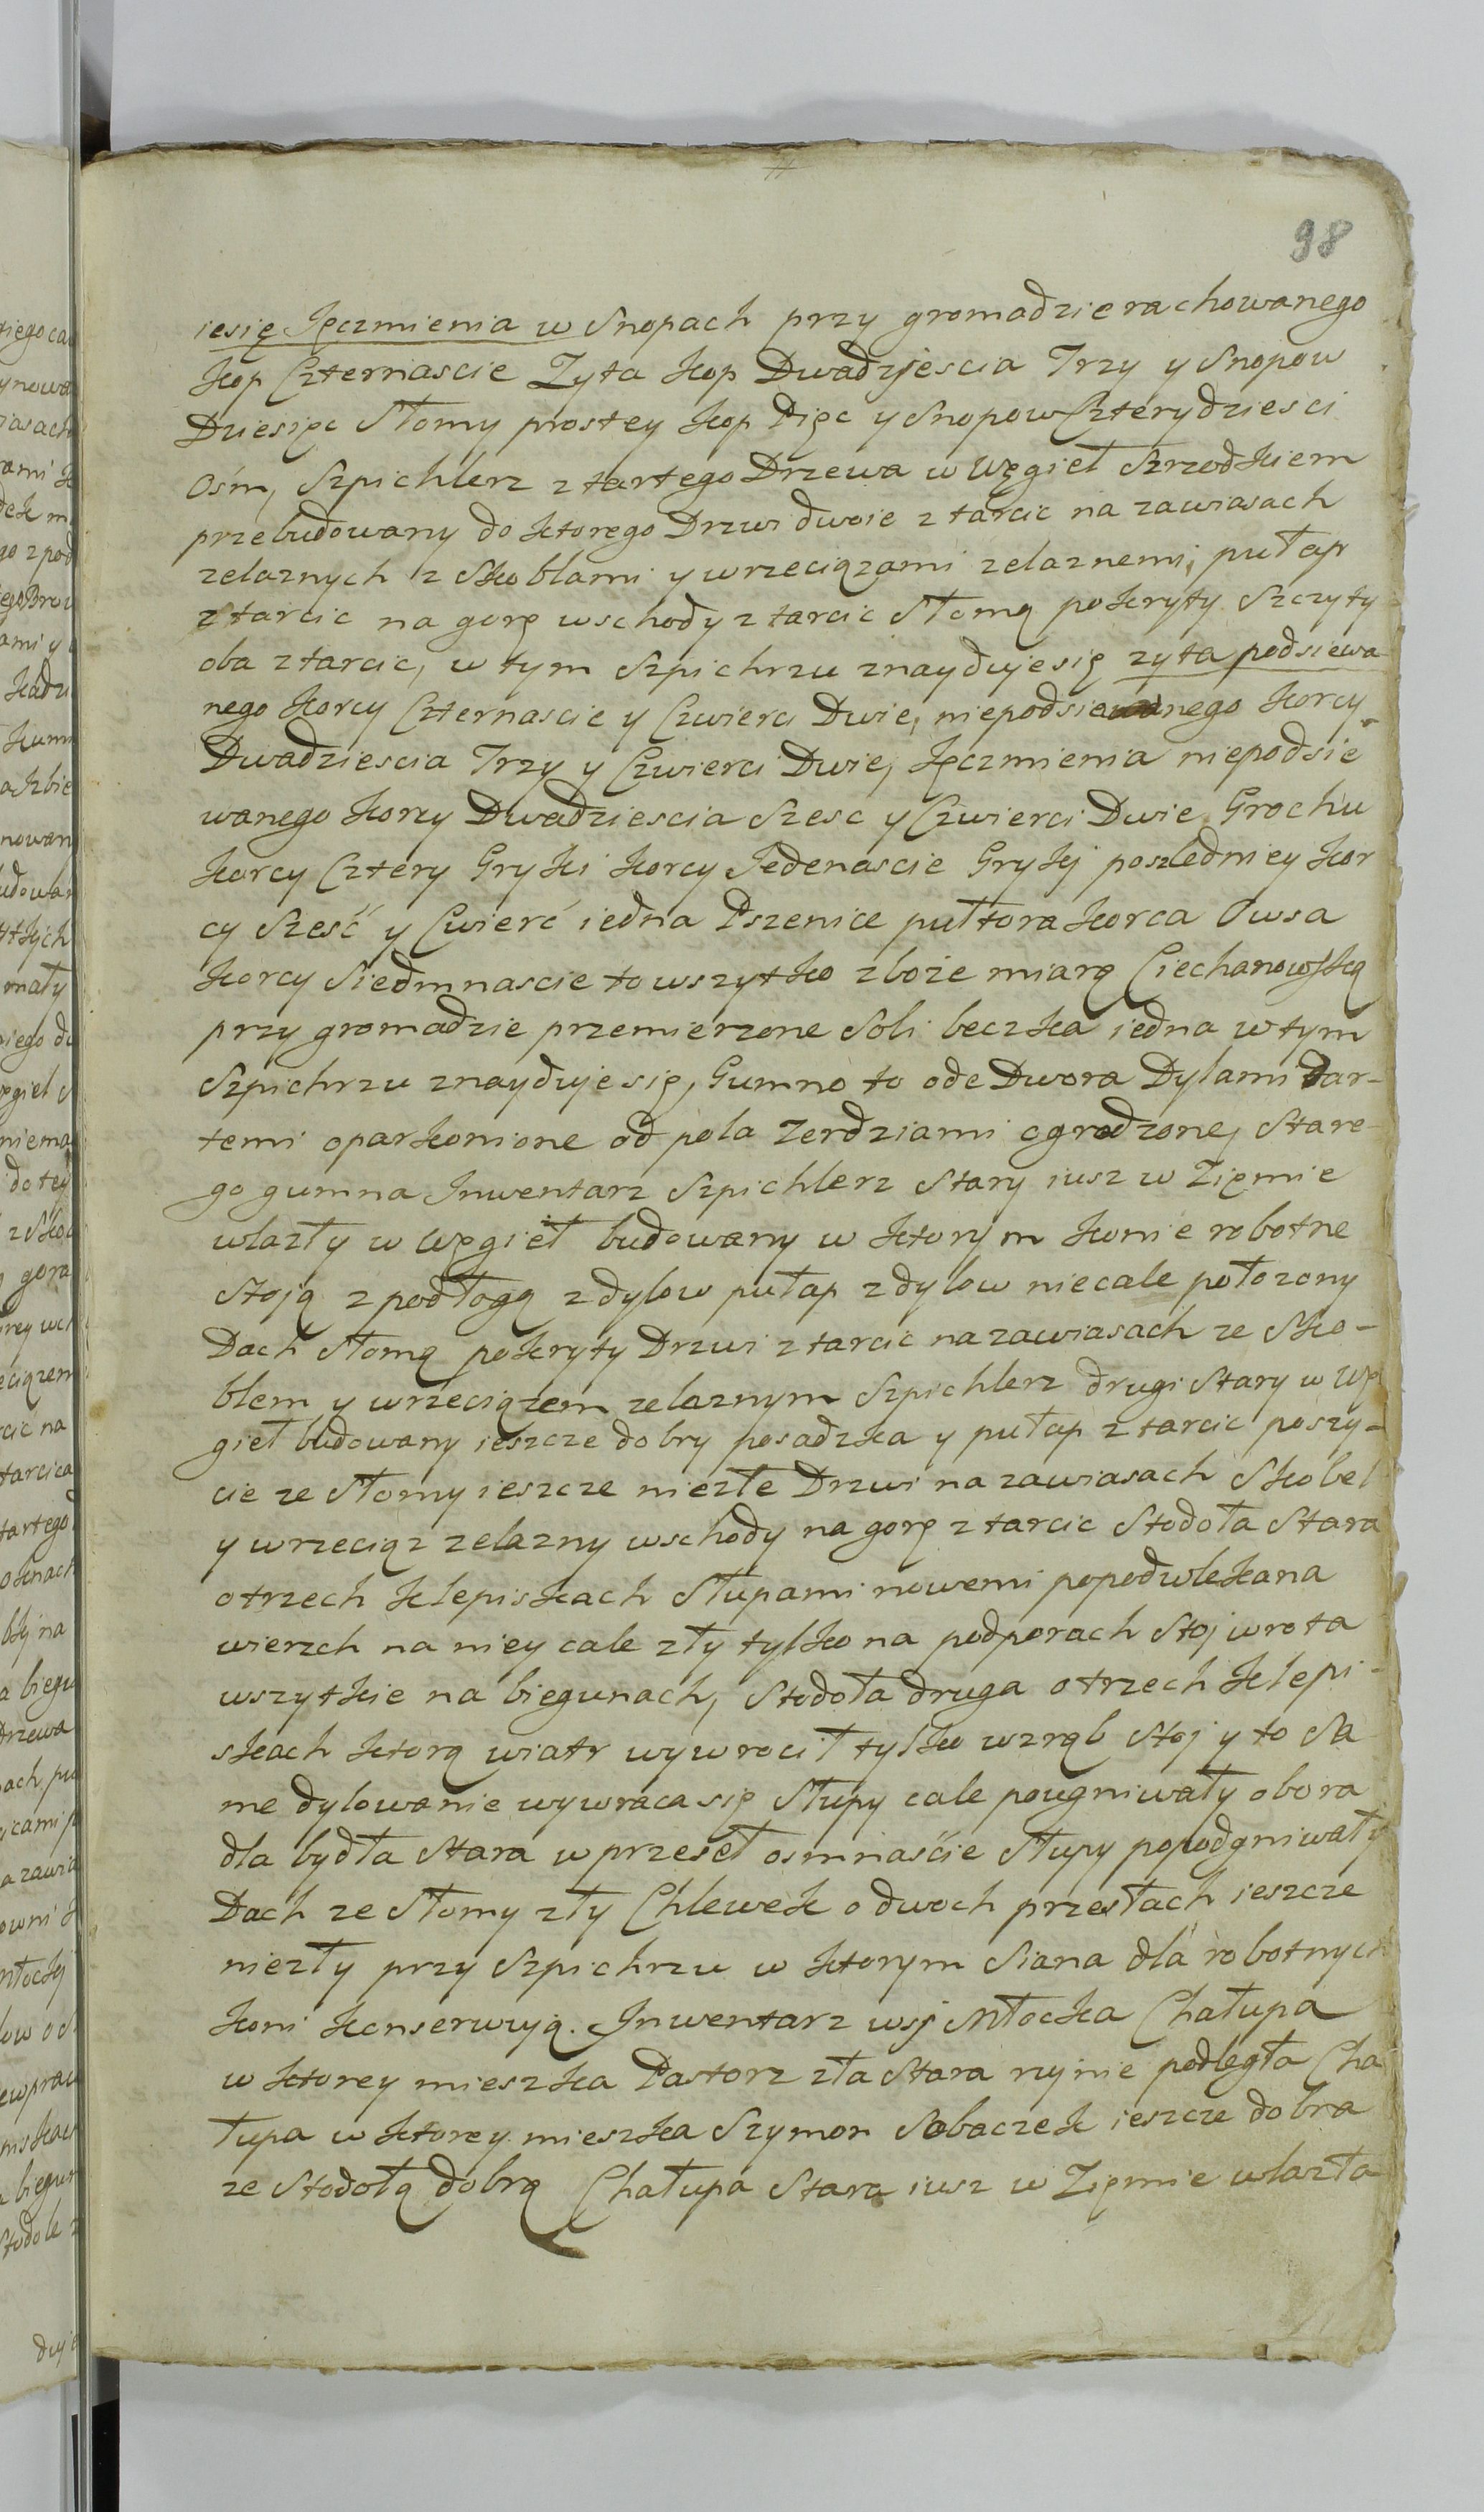 98
iesię Jęczmienia w Snopach przy gromadzie rachowanego
kop Czternascie Zyta kop Dwadzjescia Trzy y Snopow
Dziesięc Słomy prostey kop Pięc y Snopow Czterydziesci
Ośm, Szpichlerz z tartego Drzewa w Węgieł Szrodkiem
przebudowany do ktorego Drzwi dwoie z tarcic na zawiasach
zelaznych z Skoblami y wrzeciązami zelaznemi, pułap
z tarcic na gorę wschody z tarcic Słomą pokryty Szczyty
oba z tarcic, w tym Szpichrzu znayduje się zyta podsiewa
nego korcy Czternascie y Czwierci Dwie, niepodsiewanego korcy
Dwadziescia Trzy y Czwierci Dwie, Jęczmienia niepodsie
wanego korcy Dwadziescia Szesc y Czwierci Dwie Grochu
korcy Cztery Gryki korcy Jedenascie Grykj poszledniey kor
cy Sześć y Cwierć iedna Pszenice pułtora korca Owsa
korcy Siedmnascie to wszytko zboże miarą Ciechanowską
przy gromadzie przemierzone Soli beczka iedna w tym
Szpichrzu znayduje się, Gumno to ode Dwora Dylami Dar-
temi oparkonione od pola zerdziami ogrodzone, Stare-
go gumna Jnwentarz Szpichlerz Stary iusz w Ziemie
wlazły w Węgieł budowany w ktorym konie robotne
stoją z podłogą z dylow pułap z dylow niecale położony
Dach słomą pokryty Drzwi z tarcic na zawiasach ze Sko-
blem y wrzeciązem zelaznym Szpichlerz drugi Stary w Wę
gieł budowany ieszcze dobry posadzka y pułap z tarcic poszy-
cie ze Słomy ieszcze niezłe Drzwi na zawiasach Skobel
y wrzeciąz zelazny wschody na gorę z tarcic Stodoła Stara
o trzech klepiskach Słupami nowemi popodwlekana
wierzch na niey cale zły tylko na podporach stoj wrota
wszytkie na biegunach, Stodoła druga o trzech klepi-
skach ktorą wiatr wywrocił tylko wzrąb stoj y to Sa
me dylowanie wywraca się Słupy cale pougniwały obora
dla bydła Stara w przeseł osmnaście Słupy popodgniwały
Dach ze Słomy zły Chlewek o dwoch przesłach ieszcze
niezły przy Szpichrzu w ktorym Siana dla robotnych
koni konserwują. Jnwentarz wsj Młocka Chałupa
w ktorey mieszka Pastorz zła Stara rujnie podległa Cha
łupa w ktorey mieszka Szymon Sobaczek ieszcze dobra
ze Stodołą dobrą Chałupa Stara iusz w Ziemie wlazła